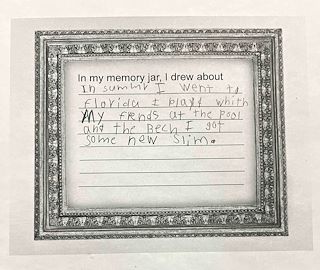 In my memory jar, I drew about
In sumur I went to
florida I playd which
My frends at the pool
and the Bech I got
some new slim.